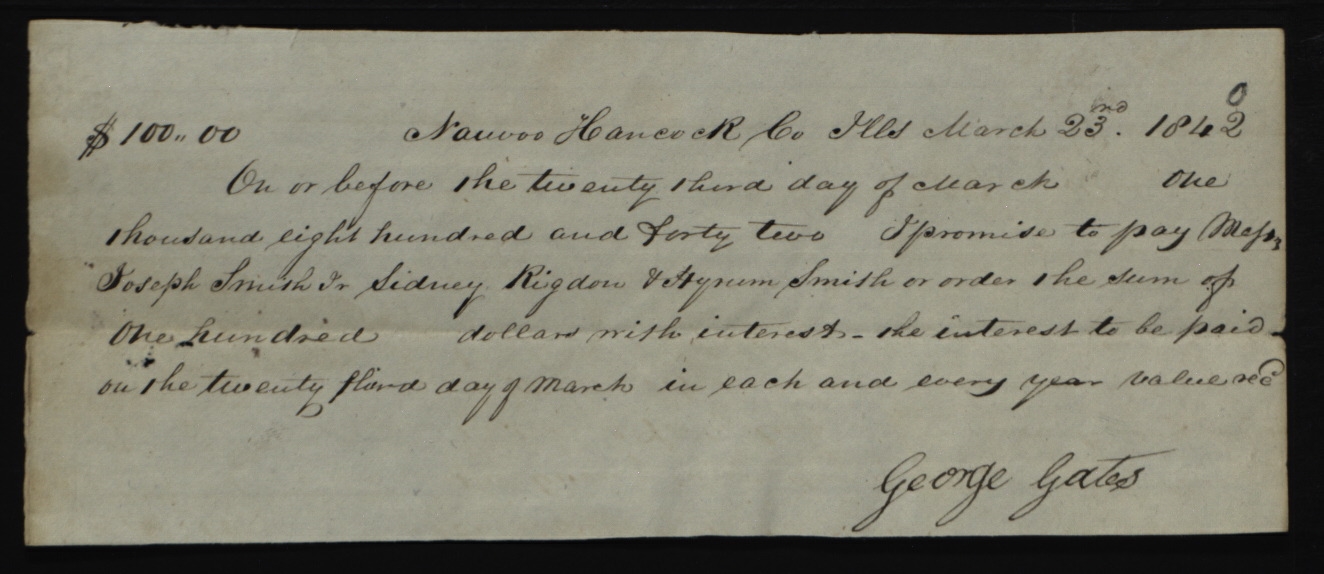 0
$100,,00 Nauvoo Hancock Co Ills March 23rd. 1842
On or before the twenty third day of March One
thousand eight hundred and forty two I promise to pay Messrs
Joseph Smith Jr Sidney Rigdon & Hyrum Smith or order the sum of
One hundred dollars with interest - the interest to be paid
on the twenty third day of March in each and every year value recd
George Gates